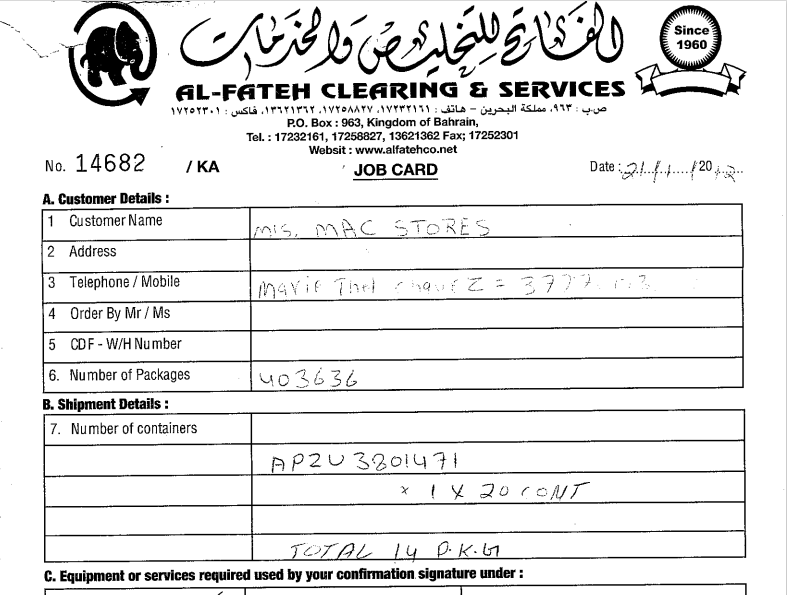 الفاتح للتخليص والخدمات
Since
1960
AL-FATEH CLEARING & SERVICES
ص.ب : ٩٦٣، مملكة البحرين – هاتف : ١٧٢٣٢١٦١، ١٧٢٥٨٨٢٧، ١٣٦٢١٣٦٢، فاكس : ١٧٢٥٢٣٠١
P.O. Box : 963, Kingdom of Bahrain,
Tel. : 17232161, 17258827, 13621362 Fax; 17252301
Websit : www.alfatehco.net
No. 14682 / KA JOB CARD Date : 21/1/2012
A. Customer Details :
1 Customer Name M/S. MAC STORES
2 Address
3 Telephone / Mobile
4 Order By Mr / Ms
5 CDF - W/H Number
6. Number of Packages 403636
B. Shipment Details :
7. Number of containers
APZU 3801471
x 1 X 20 CONT
TOTAL 14 P.K.G
C. Equipment or services required used by your confirmation signature under :